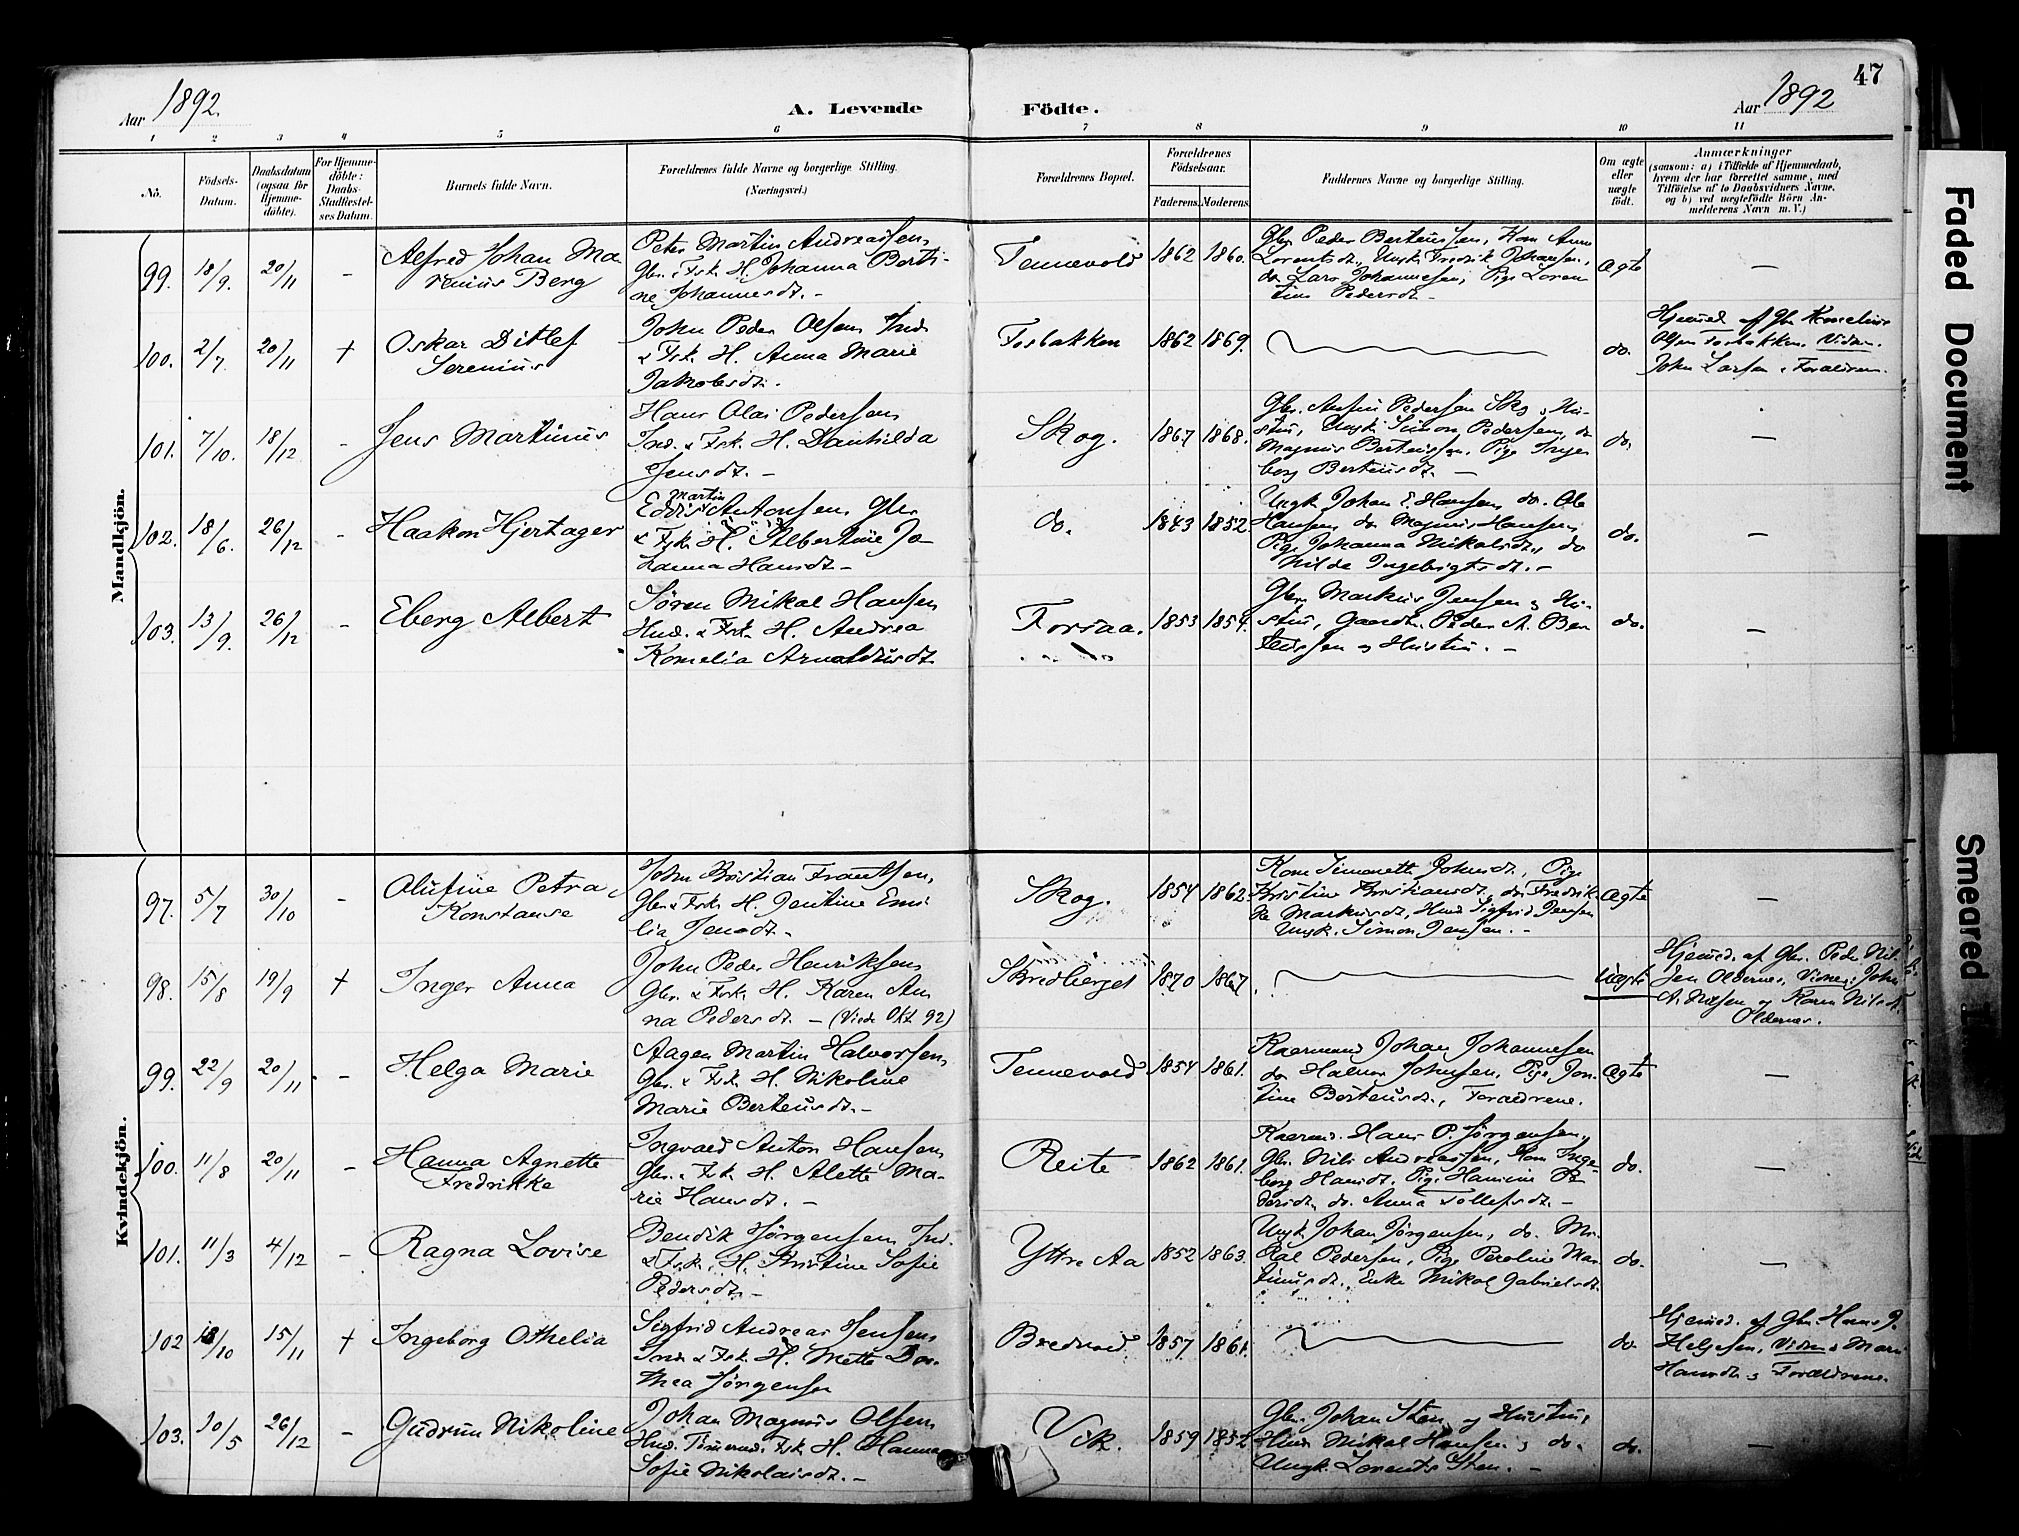 47
Aar 1892.
A. Levende Födte.
Aar 1892
1 2 3 4 5 6 7 8 9 10 11
No.
Födsels-Datum.
Daabsdatum (ogsaa for Hjemme-döbte).
For Hjemme-döbte: Daabs-Stadfæstel-ses Datum.
Barnets fulde Navn.
Forældrenes fulde Navne og borgerlige Stilling. (Næringsvei.)
Forældrenes Bopæl.
Forældrenes Födselsaar.
Faderens. Moderens.
Faddernes Navne og borgerlige Stilling.
Om ægte eller uægte födt.
Anmærkninger
(saasom: a) i Tilfælde af Hjemmedaab,
hvem der har forrettet samme, med
Tilföielse af to Daabsvidners Navne,
og b) ved uægtefödte Börn An-
melderens Navn m. V.)
Mandkjön.
99. 18/9. 20/11 –
Alfred Johan Ma-
renius Berg
Peter Martin Andreassen,
Gbr. & Fsk. H. Johanna Berti-
ne Johannesdt. –
Tennevold 1862 1860.
Gbr. Peder Berteussen, Kone Anne
Lorentsdt., Ungk. Fredrik Johansen,
do Lars Johannesen, Pige Loren-
tine Pedersdt. –
Ægte –
100. 2/7. 20/11 +
Oskar Ditlef
Serenius
John Peder Olsen Ind.
& Fsk. H. Anna Marie
Jakobsdt. –
Fosbakken 1862 1869.
do.
Hjemmed. af Gbr. Kornelius
Olsen Fosbakken. Vidner.
John Larsen & Forældrene.
101. 7/10. 18/12 –
Jens Martinus
Hans Olai Pedersen
Ind. & Fsk. H. Danhilda
Jensdt. –
Skog. 1867 1868.
Gbr. Pedersen Skog & Hu-
stru, Ungk. Simon Pedersen, do
Magnus Berteussen, Pige Inge-
borg Berteusdt. –
do. –
102. 18/6. 26/12 –
Haakon Hjertager
Martin
Antonsen, Gbr.
& Fsk. H. Albertine Jo-
hanna Hansdt –
do. 1843 1852.
Ungk. Johan E. Hansen, do. Ole
Hansen, do Magnus Hansen,
Pige Johanna Nikolaisdt., do
Hilda Ingebrigtsdt. –
do. –
103. 13/9. 26/12 –
Eberg Albert
Søren Mikal Hansen
Hmd. & Fsk. H. Andrea
Kornelia Arnoldusdt.
Forsaa. 1853 1854.
Gbr. Markus Jensen & Hu-
stru, Gaardbr. Peder A. Ber-
teussen & Hustru. –
do. –
Kvindekjön.
97. 5/7 30/10 –
Olufine Petra
Konstanse
John Kristian Frantsen,
Gbr. & Fsk. H. Jentine Emi-
lia Jensdt. –
Skog. 1854 1862
Kone Simonette Johnsdt., Pige
Kristine Kristiansdt., do Fredrik-
ke Markusdt., Hmd Sigfrid Jensen
Ungk. Simon Jensen. –
Ægte –
98. 15/8 19/9 +
Inger Anna
John Peder Henriksen
Gbr. & Fsk. H. Karen An-
na Pedersdt. – (Viede Okt. 92)
Skredberget 1870 1867.
Uægte
Hjemmed. af Gbr. Peder Nil-
sen Oldernes, Vidner: John
A. Nilsen og Karen Nilsdt.
Oldernes.
99. 22/9 20/11. –
Helga Marie
Aagen Martin Halvorsen,
Gbr. & Fsk. H. Nikoline
Marie Berteusdt. –
Tennevold 1854 1861.
Kaarmand Johan Johannesen
do Halvor Johnsen, Pige Jen-
tine Berteusdt., Forældrene.
Ægte –
100. 11/8 20/11 –
Hanna Agnette
Fredrikke
Ingvald Anton Hansen,
Gbr. & Fsk. H. Alette Ma-
rie Hansdt. –
Reite 1862 1861.
Kaarm. Hans P. Jørgensen,
Gbr. Nils Andreassen, Kone Inge-
borg Hansdt. Pige Hanine Pe-
dersdt., do. Anna Tollefsdt. –
do. –
101. 11/3 4/12 –
Ragna Lovise
Bendik Jørgensen, Ind.
& Fsk. H. Kristine Sofie
Pedersdt. –
Yttre Aa 1852 1863.
Ungk. Johan Jørgensen, do. Mi-
kal Pedersen, Pige Peroline Mar-
tinusdt., Enke Mikal Gabrielsdt.
do. –
102 18/10 15/11 +
Ingeborg Othelia
Sigfrid Andreas Jensen
Ind. & Fsk. H. Mette Dor-
thea Jørgensen
Bredvold 1857 1861.
do.
Hjemmed. af Gbr. Hans J.
Helgesen, Vidner: Marie
Hansdt. & Forældrene.
103. 10/5 26/12 –
Gudrun Nikoline
Johan Magnus Olsen,
Hmd. Tømmermd. Fsk. H. Hanna
Sofie Nikolaisdt. –
Vik. 1859 1852
Gbr. Johan Sten og Hustru,
Hmd. Mikal Hansen & do.
Ungk. Lorents Sten. –
do. –
Faded Document
Smeared